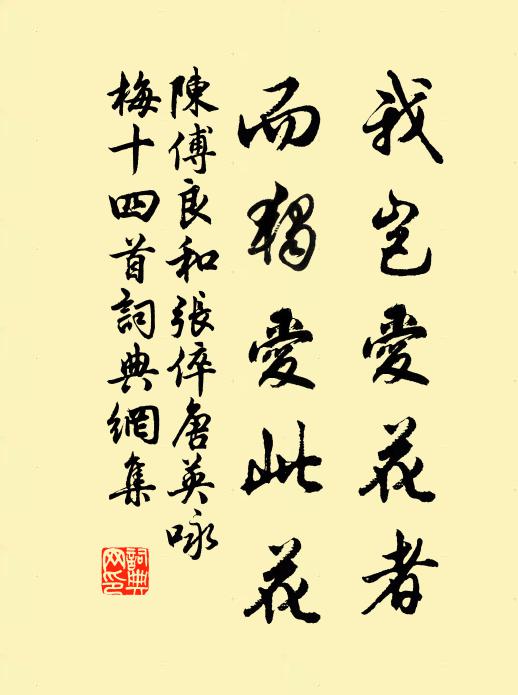 我豈愛花者
而獨愛此花
陳傅良和張倅唐英咏
梅十四首詞典網集
詞典
网印